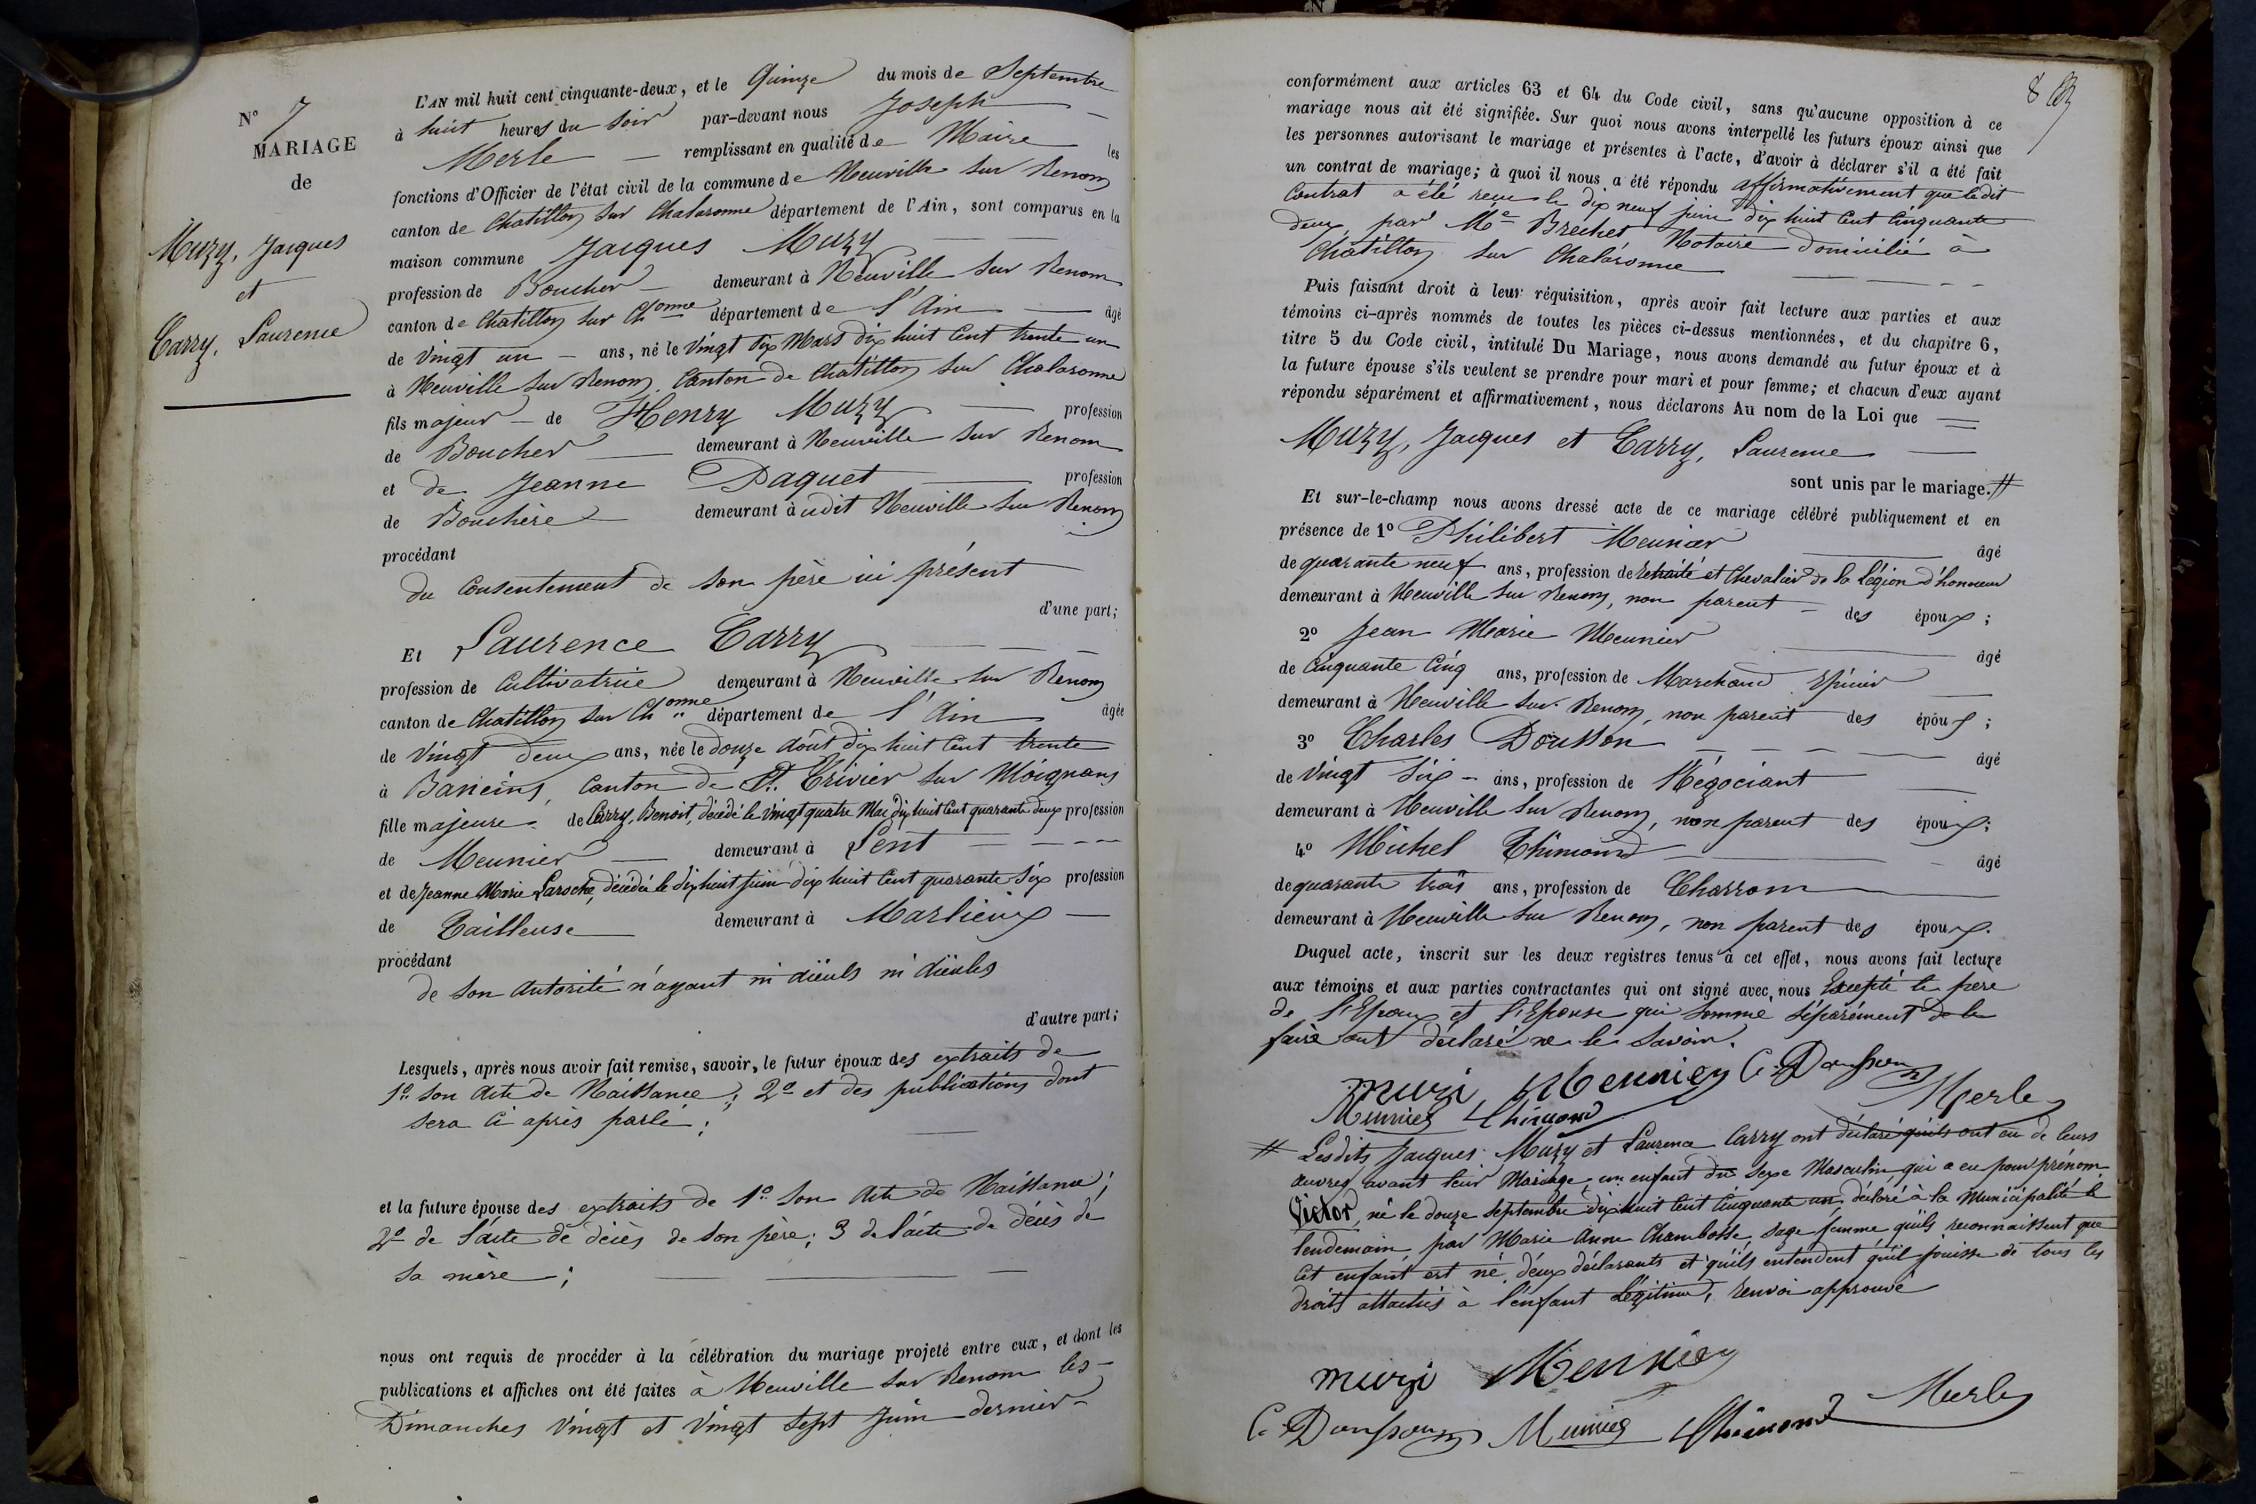 N° 7
MARIAGE
de
Muzy, Jacques
et
Carry, Laurence
L'AN mil huit cent cinquante-deux, et le Quinze du mois de Septembre
à huit heures du soir par-devant nous Joseph
Merle remplissant en qualité de Maire les
fonctions d'Officier de l'état civil de la commune de Neuville sur Renom
canton de Chatillon sur Chalaronne département de l'Ain, sont comparus en la
maison commune Jacques Muzy
profession de Boucher demeurant à Neuville sur Renom
canton de Chatillon sur Chonne département de l'Ain âgé
de vingt un ans, né le vingt dix Mars dix huit cent trente un
à Neuville sur Renom, Canton de Chatillon sur Chalaronne
fils majeur de Henry Muzy profession
de Boucher demeurant à Neuville sur Renom
et de Jeanne Paquet profession
de Bouchère demeurant à udit Neuville sur Renom
procédant
du consentement de son père ici présent
d'une part;
Et Laurence Carry
profession de Cultivatrice demeurant à Neuville sur Renom
canton de Chatillon sur Chonne département de l'Ain âgée
de vingt deux ans, née le douze Août dix huit cent trente
à Baneins, Canton de St. Trivier sur Moignans
fille majeure de Carry, Benoit, décédé le vingt quatre Mai dix huit cent quarante deux profession
de Meunier demeurant à Lent
et de Jeanne Marie Laroche, décédée le dix huit juin dix huit cent quarante six profession
de Tailleuse demeurant à Marlieux
procédant
de son autorité n'ayant ni aïeuls ni aïeules
d'autre part;
Lesquels, après nous avoir fait remise, savoir, le futur époux des extraits de
1° son acte de Naissance; 2° et des publications dont
sera ci après parlé;
et la future épouse des extraits de 1° son acte de Naissance;
2° de l'acte de décès de son père; 3 de l'acte de décès de
sa mère;
nous ont requis de procéder à la célébration du mariage projeté entre eux, et dont les
publications et affiches ont été faites à Neuville sur Renom les
Dimanches vingt et vingt sept Juin dernier
8
conformément aux articles 63 et 64 du Code civil, sans qu'aucune opposition à ce
mariage nous ait été signifiée. Sur quoi nous avons interpellé les futurs époux ainsi que
les personnes autorisant le mariage et présentes à l'acte, d'avoir à déclarer s'il a été fait
un contrat de mariage; à quoi il nous a été répondu affirmativement que ledit
Contrat a été reçu le dix neuf juin dix huit cent cinquante
deux par Me Brechet Notaire domicilié à
Chatillon sur Chalaronne
Puis faisant droit à leur réquisition, après avoir fait lecture aux parties et aux
témoins ci-après nommés de toutes les pièces ci-dessus mentionnées, et du chapitre 6,
titre 5 du Code civil, intitulé Du Mariage, nous avons demandé au futur époux et à
la future épouse s'ils veulent se prendre pour mari et pour femme; et chacun d'eux ayant
répondu séparément et affirmativement, nous déclarons Au nom de la Loi que
Muzy, Jacques et Carry, Laurence
sont unis par le mariage. #
Et sur-le-champ nous avons dressé acte de ce mariage célébré publiquement et en
présence de 1° Philibert Meunier âgé
de quarante neuf ans, profession de retraité et Chevalier de la Légion d'honneur
demeurant à Neuville sur Renom, non parent des époux;
2° Jean Marie Meunier âgé
de cinquante cinq ans, profession de Marchand Epicier
demeurant à Neuville sur Renom, non parent des époux;
3° Charles Dousson âgé
de vingt six ans, profession de Négociant
demeurant à Neuville sur Renom, non parent des époux;
4° Michel Thimond âgé
de quarante trois ans, profession de Charron
demeurant à Neuville sur Renom, non parent des époux.
Duquel acte, inscrit sur les deux registres tenus à cet effet, nous avons fait lecture
aux témoins et aux parties contractantes qui ont signé avec nous Excepté le père
de l'Epoux et l'Epouse qui sommé séparément de le
faire ont déclaré ne le savoir.
muzi Meunier C. Dousson
Meunier Thimond Merle
# Lesdits Jacques Muzy et Laurence Carry ont déclaré qu'ils ont eu de leurs
œuvres avant leur Mariage, un enfant du sexe Masculin qui a eu pour prénom
Victor, né le douze septembre dix huit cent cinquante un déclaré à la Municipalité le
lendemain, par Marie Anne Chambosse, sage femme qu'ils reconnaissent que
cet enfant est né d'eux déclarants et qu'ils entendent qu'il jouisse de tous les
droits attachés à l'enfant Légitime, renvoi approuvé
muzi Meunier
C. Dousson Meunier Thimond Merle